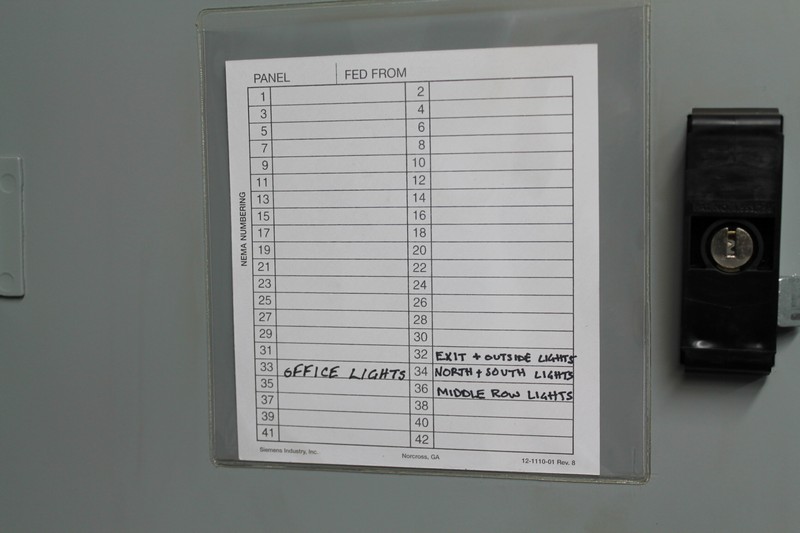 PANEL FED FROM
NEMA NUMBERING
1 2
3 4
5 6
7 8
9 10
11 12
13 14
15 16
17 18
19 20
21 22
23 24
25 26
27 28
29 30
31 32 EXIT + OUTSIDE LIGHTS
33 OFFICE LIGHTS 34 NORTH + SOUTH LIGHTS
35 36 MIDDLE ROW LIGHTS
37 38
39 40
41 42
Siemens Industry, Inc. Norcross, GA 12-1110-01 Rev. 6